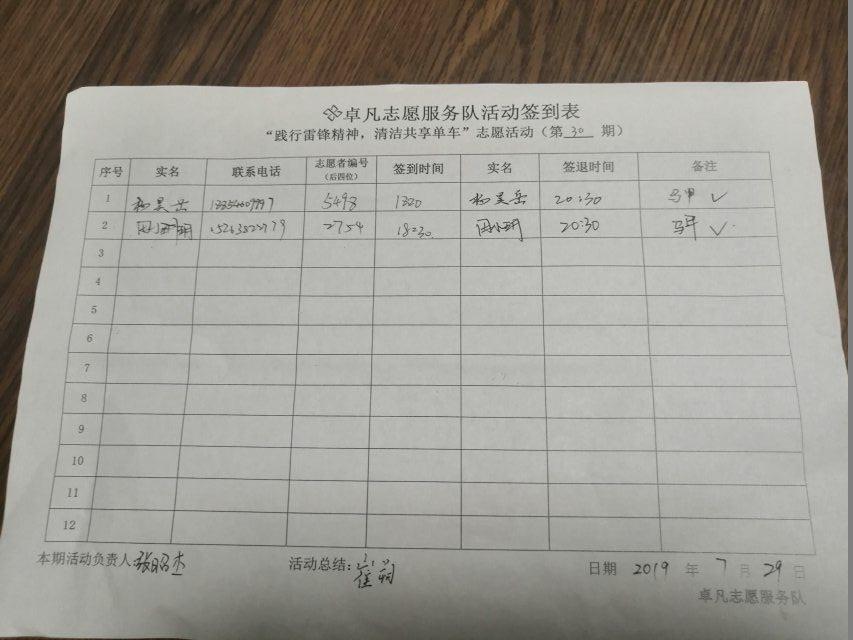 卓凡志愿服务队活动签到表
“践行雷锋精神，清洁共享单车”志愿活动（第 30 期）
序号 实名 联系电话 志愿者编号（后四位） 签到时间 实名 签退时间 备注
1 杨昊岳 5498 杨昊岳 20:30 马甲 ✓
2 2754 18:30 20:30 马甲 ✓
3
4
5
6
7
8
9
10
11
12
本期活动负责人:张昭杰 活动总结: 日期 2019 年 7 月 29 日
卓凡志愿服务队